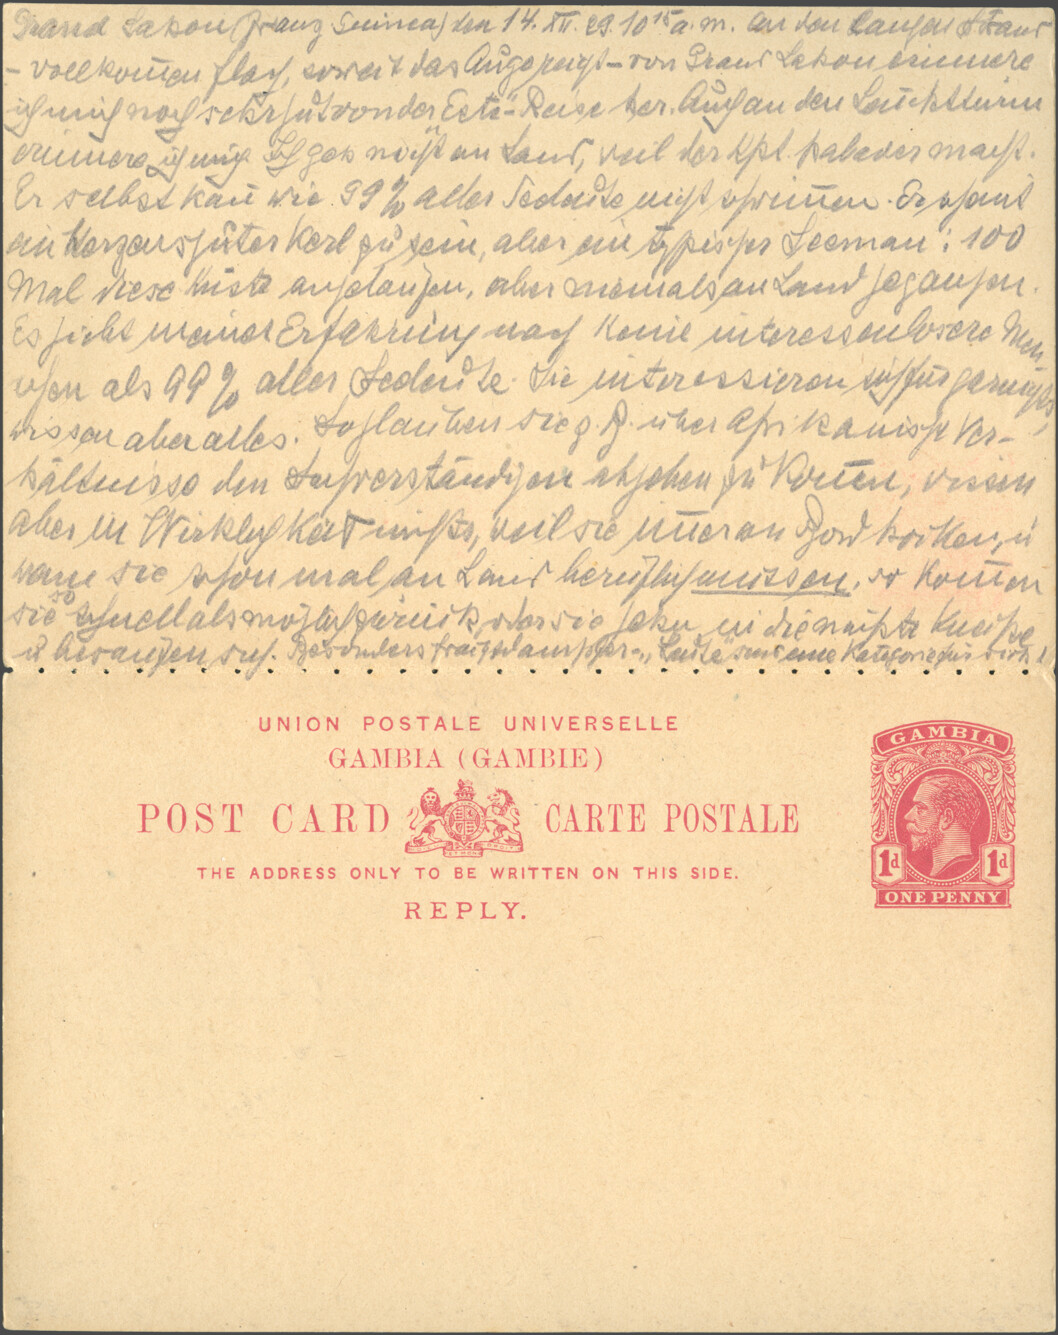 Grand Lahou (Franz Guinea) den 14. XII. 29. 10 15 a. m. An den langen Strand
- vollkomen flach, soweit das Auge reicht - von Grand Lahou erinnere
ich mich noch sehr gut von der Reise her. Auch an den Leuchtturm
erinnere ich mich. Ich geh nicht an Land, weil der Kpt. palaver macht.
Er selbst kan wie 99% aller Seeleute nicht schwimen. Er scheint
ein herzensguter Kerl zu sein, aber ein typischer Seeman: 100
Mal diese Küste angelaufen, aber niemals an Land gegangen.
Es giebt meiner Erfahrung nach keine interessenlosere Men-
schen als 99% aller Seeleute. Sie interessieren sich für garnichts,
wissen aber alles. So glauben sie z. B. über Afrikanische Ver-
hältnisse den Sachverständigen abgeben zu könen, wissen
aber in Wirklichkeit nichts, weil sie imer an Bord hocken, u
wenn sie schon mal an Land beruflich müssen, so komen
sie so schnell als möglich zurück, oder sie gehn in die nächste Kneipe
u besaufen sich. Besonders Frachtdampfer-"Leute" sind eine Kategorie für sich!
UNION POSTALE UNIVERSELLE
GAMBIA (GAMBIE)
POST CARD CARTE POSTALE
THE ADDRESS ONLY TO BE WRITTEN ON THIS SIDE.
REPLY.
GAMBIA
1d 1d
ONE PENNY